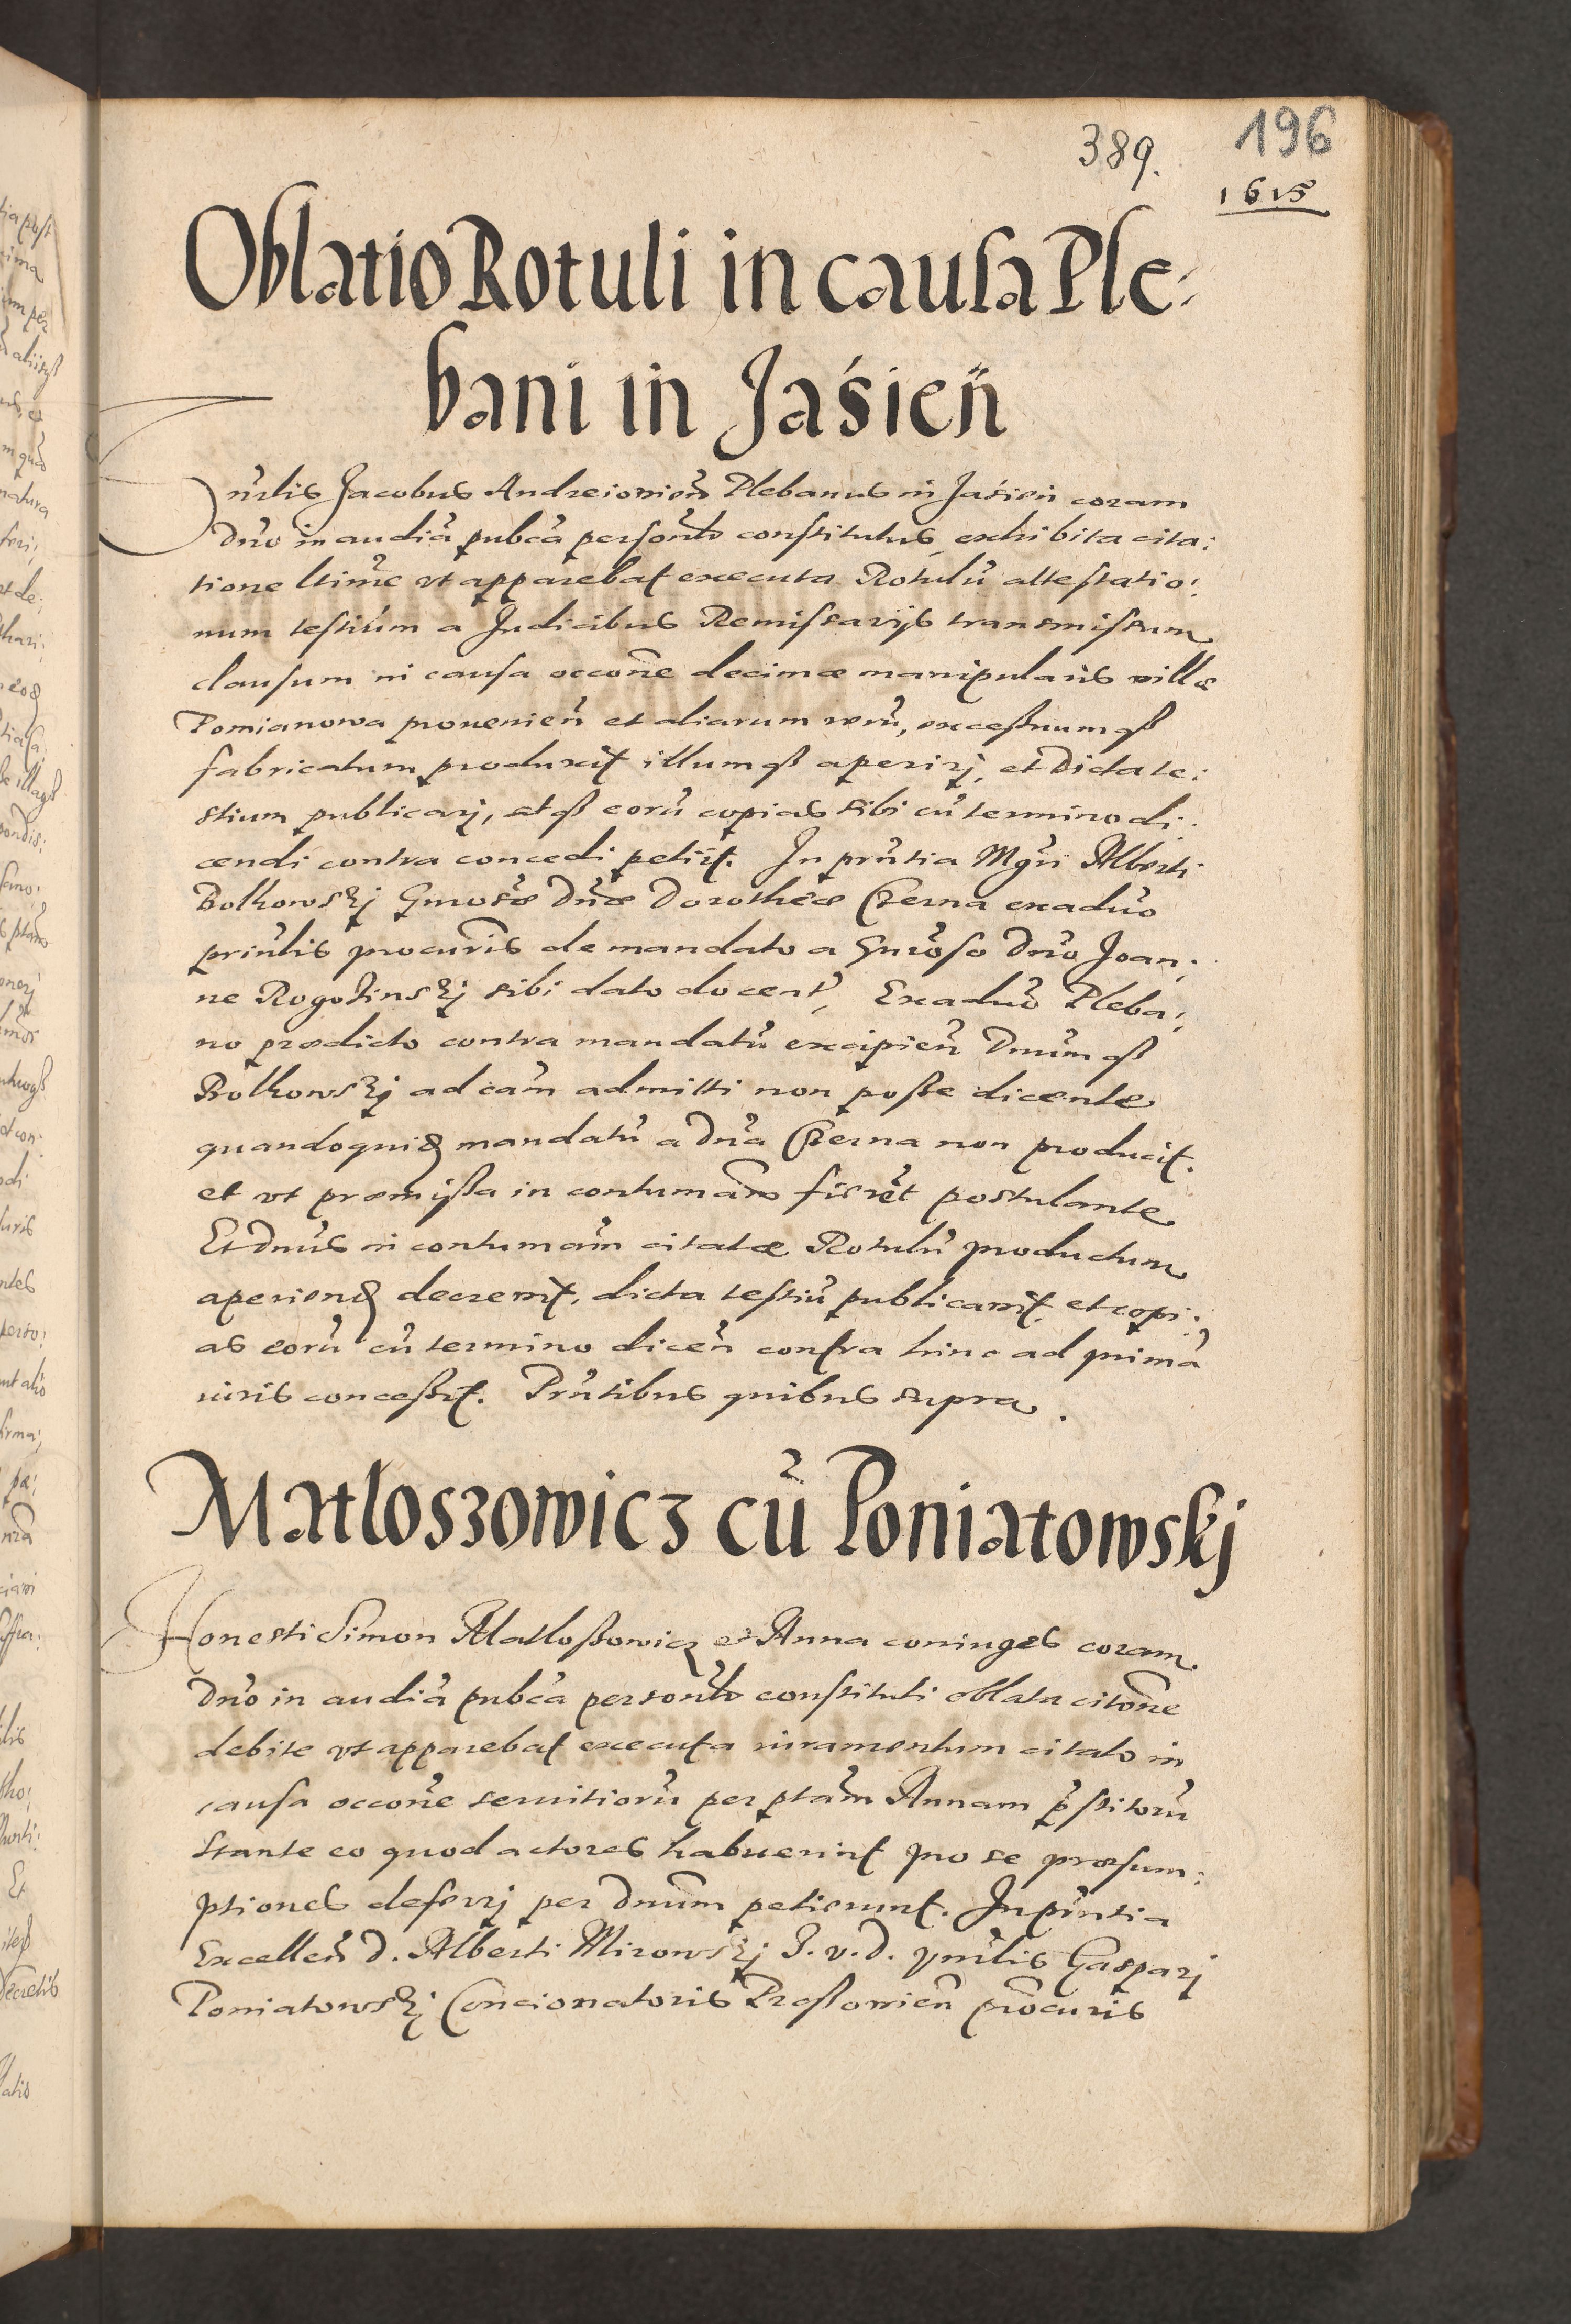 389.
196
1615
Oblatio Rotuli in causa Ple:
bani in Jásień
Vn̄rlis Jacobus Andreiovien̄ Plebanus in Jásień coram
Dn̄o in audiā pub̄ca person̄lr constitutus, exhibita cita:
tione ltim̄e vt apparebat executa Rotulū attestatio:
num testium a Judicibus Remissarijs transmissum
clausum in causa occōne decimæ manipularis villæ
Pomianowa provenien̄ et aliarum rerū, excessuumqß
fabricatum produxit illumqß aperirj, et dicta te:
stium publicarj, atqß eorū copias sibi cū termino di:
cendi contra concedi petijt. In prn̄tia Mgn̄i Alberti
Bolkowskj Gn̄rosæ Dn̄æ Dorotheæ Czerna ex aduō
prin̄lis procur̄is de mandato a Gn̄roso Dn̄o Joan:
ne Rogozinskj sibi dato docent̄, Ex aduō Pleba:
no prædicto contra mandatū excipien̄ Dn̄umqß
Bolkowskj ad cām admitti non posse dicente
quandoquid mandatū a Dn̄a Czerna non producit.
et vt præmissa in contumām fierēt postulante
Et Dn̄us in contumām citatæ Rotulū productum
aperiend decrevit, dicta testiū publicavit et copi:
as eorū cū termino dicen̄ contra hinc ad primā
iuris concessit. Prn̄tibus quibus supra.
Matloszowicz cū Poniatowskj
Honesti Simon Matloßowicz et Anna coniuges coram
Dn̄o in audiā pub̄ca person̄lr constituti oblata citōne
debite vt apparebat executa iuramentum citato in
causa occōne seruitiorū per ptām Annam p̄stitorū
stante eo quod actores habuerint pro se præsum:
ptiones deferrj per Dn̄um petierunt. In prn̄tia
Excellen̄ D. Alberti Mirowskj J. v. d. vn̄rlis Gasparj
Poniatowskj Concionatoris Proßovien̄ prōcuris